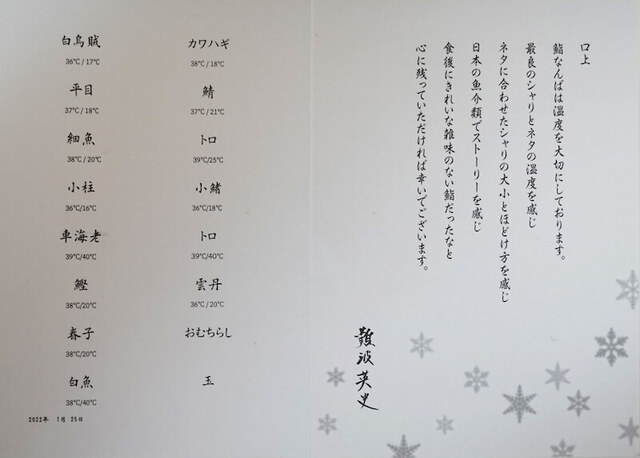 白烏賊
36℃/17℃
平目
37℃/18℃
細魚
38℃/20℃
小柱
36℃/16℃
車海老
39℃/40℃
鰹
38℃/20℃
春子
38℃/20℃
白魚
38℃/40℃
2022年 1月 25日
カワハギ
38℃/18℃
鯖
37℃/21℃
トロ
39℃/25℃
小鰭
36℃/18℃
トロ
39℃/40℃
雲丹
36℃/20℃
おむちらし
玉
口上
鮨なんばは温度を大切にしております。
最良のシャリとネタの温度を感じ
ネタに合わせたシャリの大小とほどけ方を感じ
日本の魚介類でストーリーを感じ
食後にきれいな雑味のない鮨だったなと
心に残っていただければ幸いでございます。
難波英史